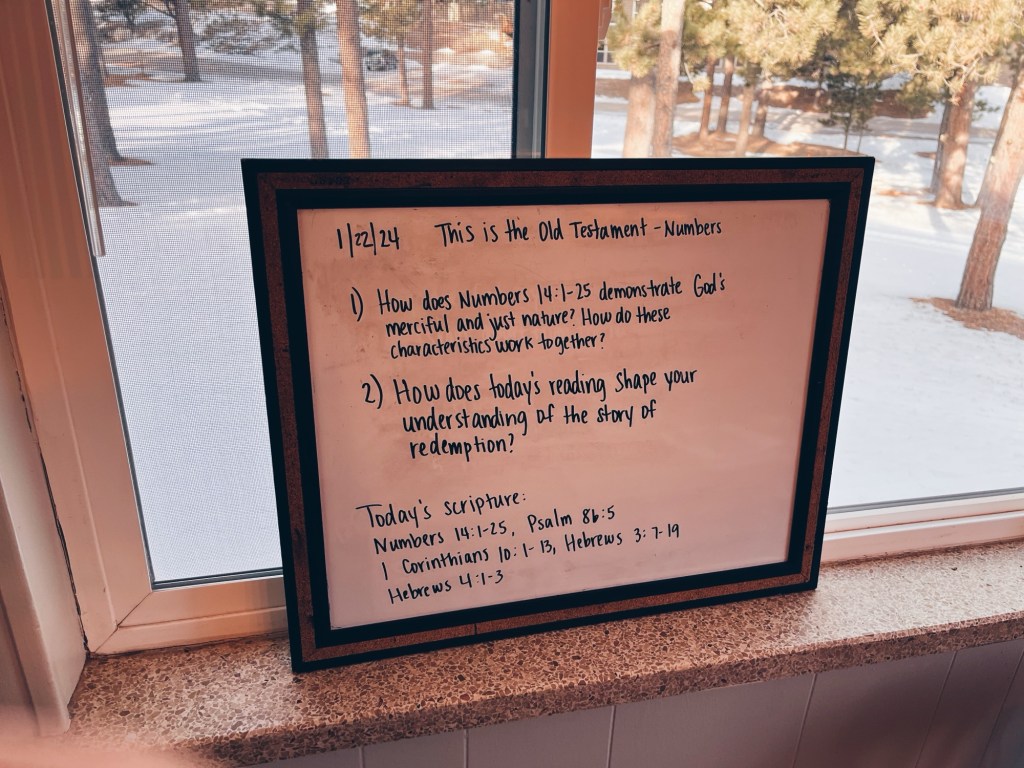 1/22/24 This is the Old Testament - Numbers
1) How does Numbers 14:1-25 demonstrate God's
merciful and just nature? How do these
characteristics work together?
2) How does today's reading shape your
understanding of the story of
redemption?
Today's scripture:
Numbers 14:1-25, Psalm 86:5
1 Corinthians 10:1-13, Hebrews 3:7-19
Hebrews 4:1-3